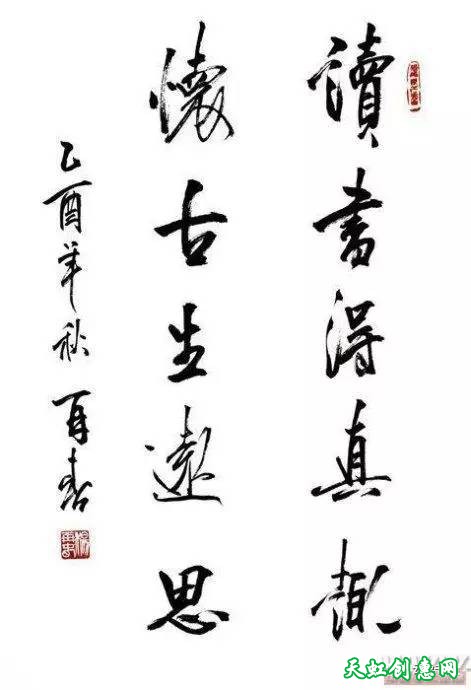 讀書得真趣
懷古生遠思
乙酉年秋 再春
天虹创意网